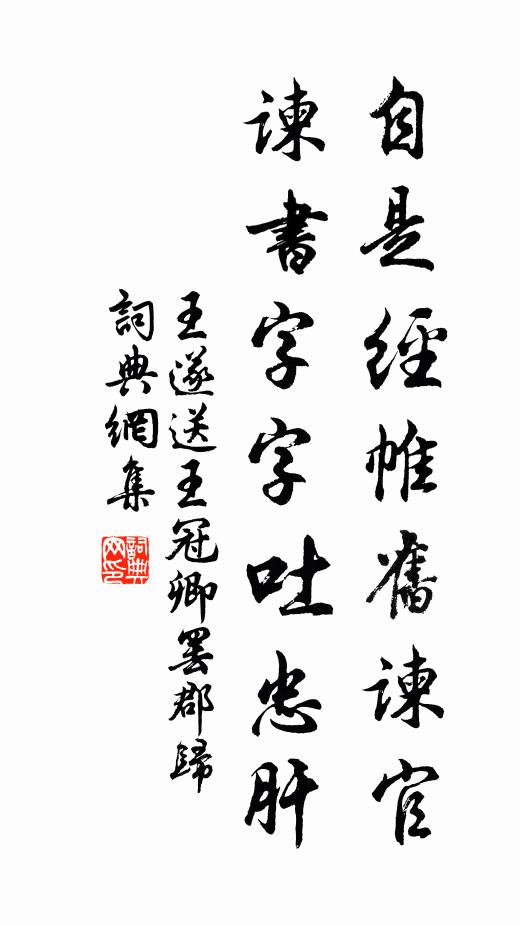 自是經帷舊諫官
諫書字字吐忠肝
王遂送王冠卿罢郡歸
詞典網集
詞典网印